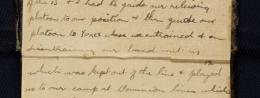 of the 13 & I had to guide our relieving
platoon to our position & then guide our
platoon to where we entrained & on
disentraining our band met us
which was kept out of the line & played
us to our camp at Dominion lines which